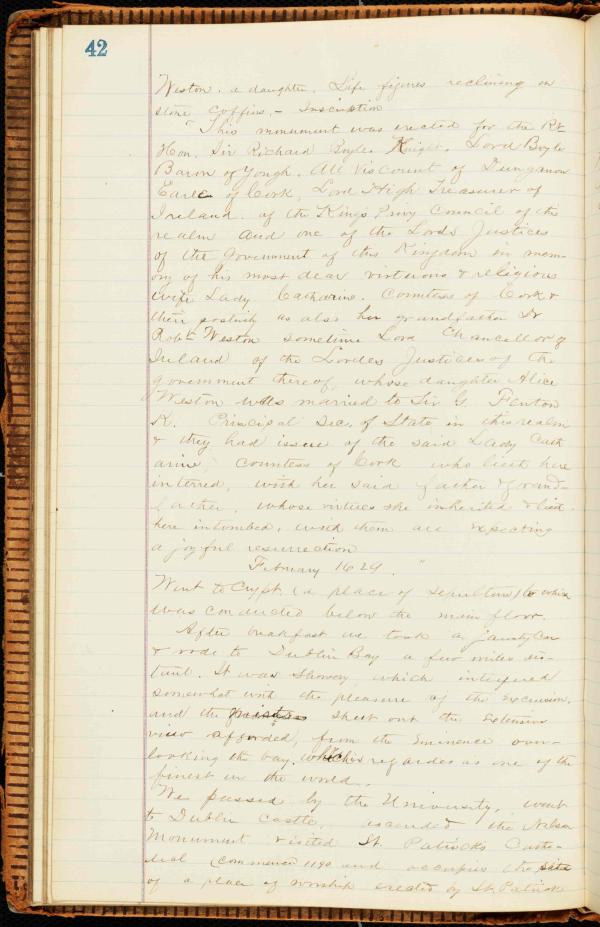 42
Weston. a daughter. Life figures reclining on
stone coffins, - Inscription
"This monument was erected for the Rt
Hon. Sir Richard Boyle. Knight. Lord Boyle
Baron of Yongh. All Viscount of Dungannon
Earle of Cork, Lord High Treasurer of
Ireland. of the Kings Privy Council of this
realm and one of the Lords Justices
of the Government of this Kingdom in mem-
ory of his most dear virtuous & religious
wife Lady Catharine. Countess of Cork &
their posterity as also her grandfather Dr
Robt Weston sometime Lord Chancellor of
Ireland of the Lordes Justices of the
government thereof, whose daughter Alice
Weston was married to Sir G. Fenton
K. Principal Sec. of State in this realm
& they had issue of the said Lady Cath
arine, Countess of Cork who lieth here
interred, with her said father & grand-
father, whose virtues she inherited & lieth
here intombed, with them are expecting
a joyful resurrection
February 1629."
Went to Crypt. (a place of sepulture) to which
was conducted below the main floor.
After breakfast we took a jaunty car
& rode to Dublin Bay a few miles dis-
tant. It was showery which interfered
somewhat with the pleasure of the excursion,
and the shut out the extensive
view afforded, from the eminence over-
looking the bay, which is regarded as one of the
finest in the world.
We passed by the University, went
to Dublin Castle, ascended the Nelson
Monument & visited St. Patricks Cathe-
dral (commenced 1190 and occupies the site
of a place of worship erected by St. Patrick